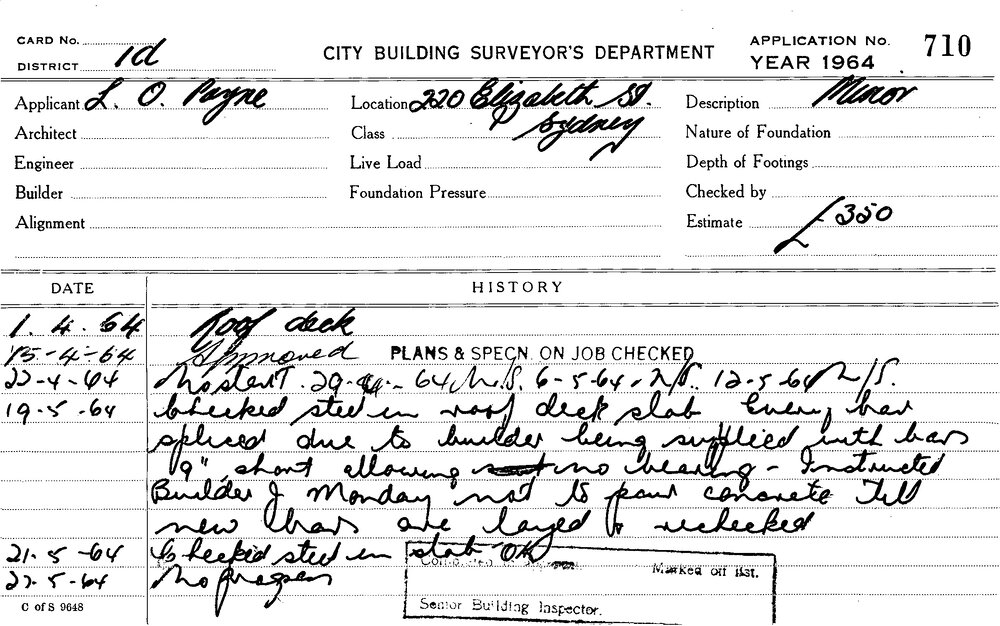 CARD No.
DISTRICT 1d
CITY BUILDING SURVEYOR'S DEPARTMENT
APPLICATION No. 710
YEAR 1964
Applicant L. O. Payne
Location 220 Elizabeth St.
Sydney
Description Minor
Architect
Class
Nature of Foundation
Engineer
Live Load
Depth of Footings
Builder
Foundation Pressure
Checked by
Alignment
Estimate £350
DATE HISTORY
1. 4. 64 Roof deck
15-4-64 Approved PLANS & SPECN. ON JOB CHECKED
22-4-64 No start. 29-4-64 N/S. 6-5-64 N/S. 12-5-64 N/S.
19-5-64 Checked steel in roof deck slab Every bar
spliced due to builder being supplied with bars
9" short allowing no bearing - Instructed
Builder J Monday not to pour concrete till
new bars are layed & rechecked
21-5-64 Checked steel in slab OK
22-5-64 No progress
Marked off list.
Senior Building Inspector.
C of S 9648